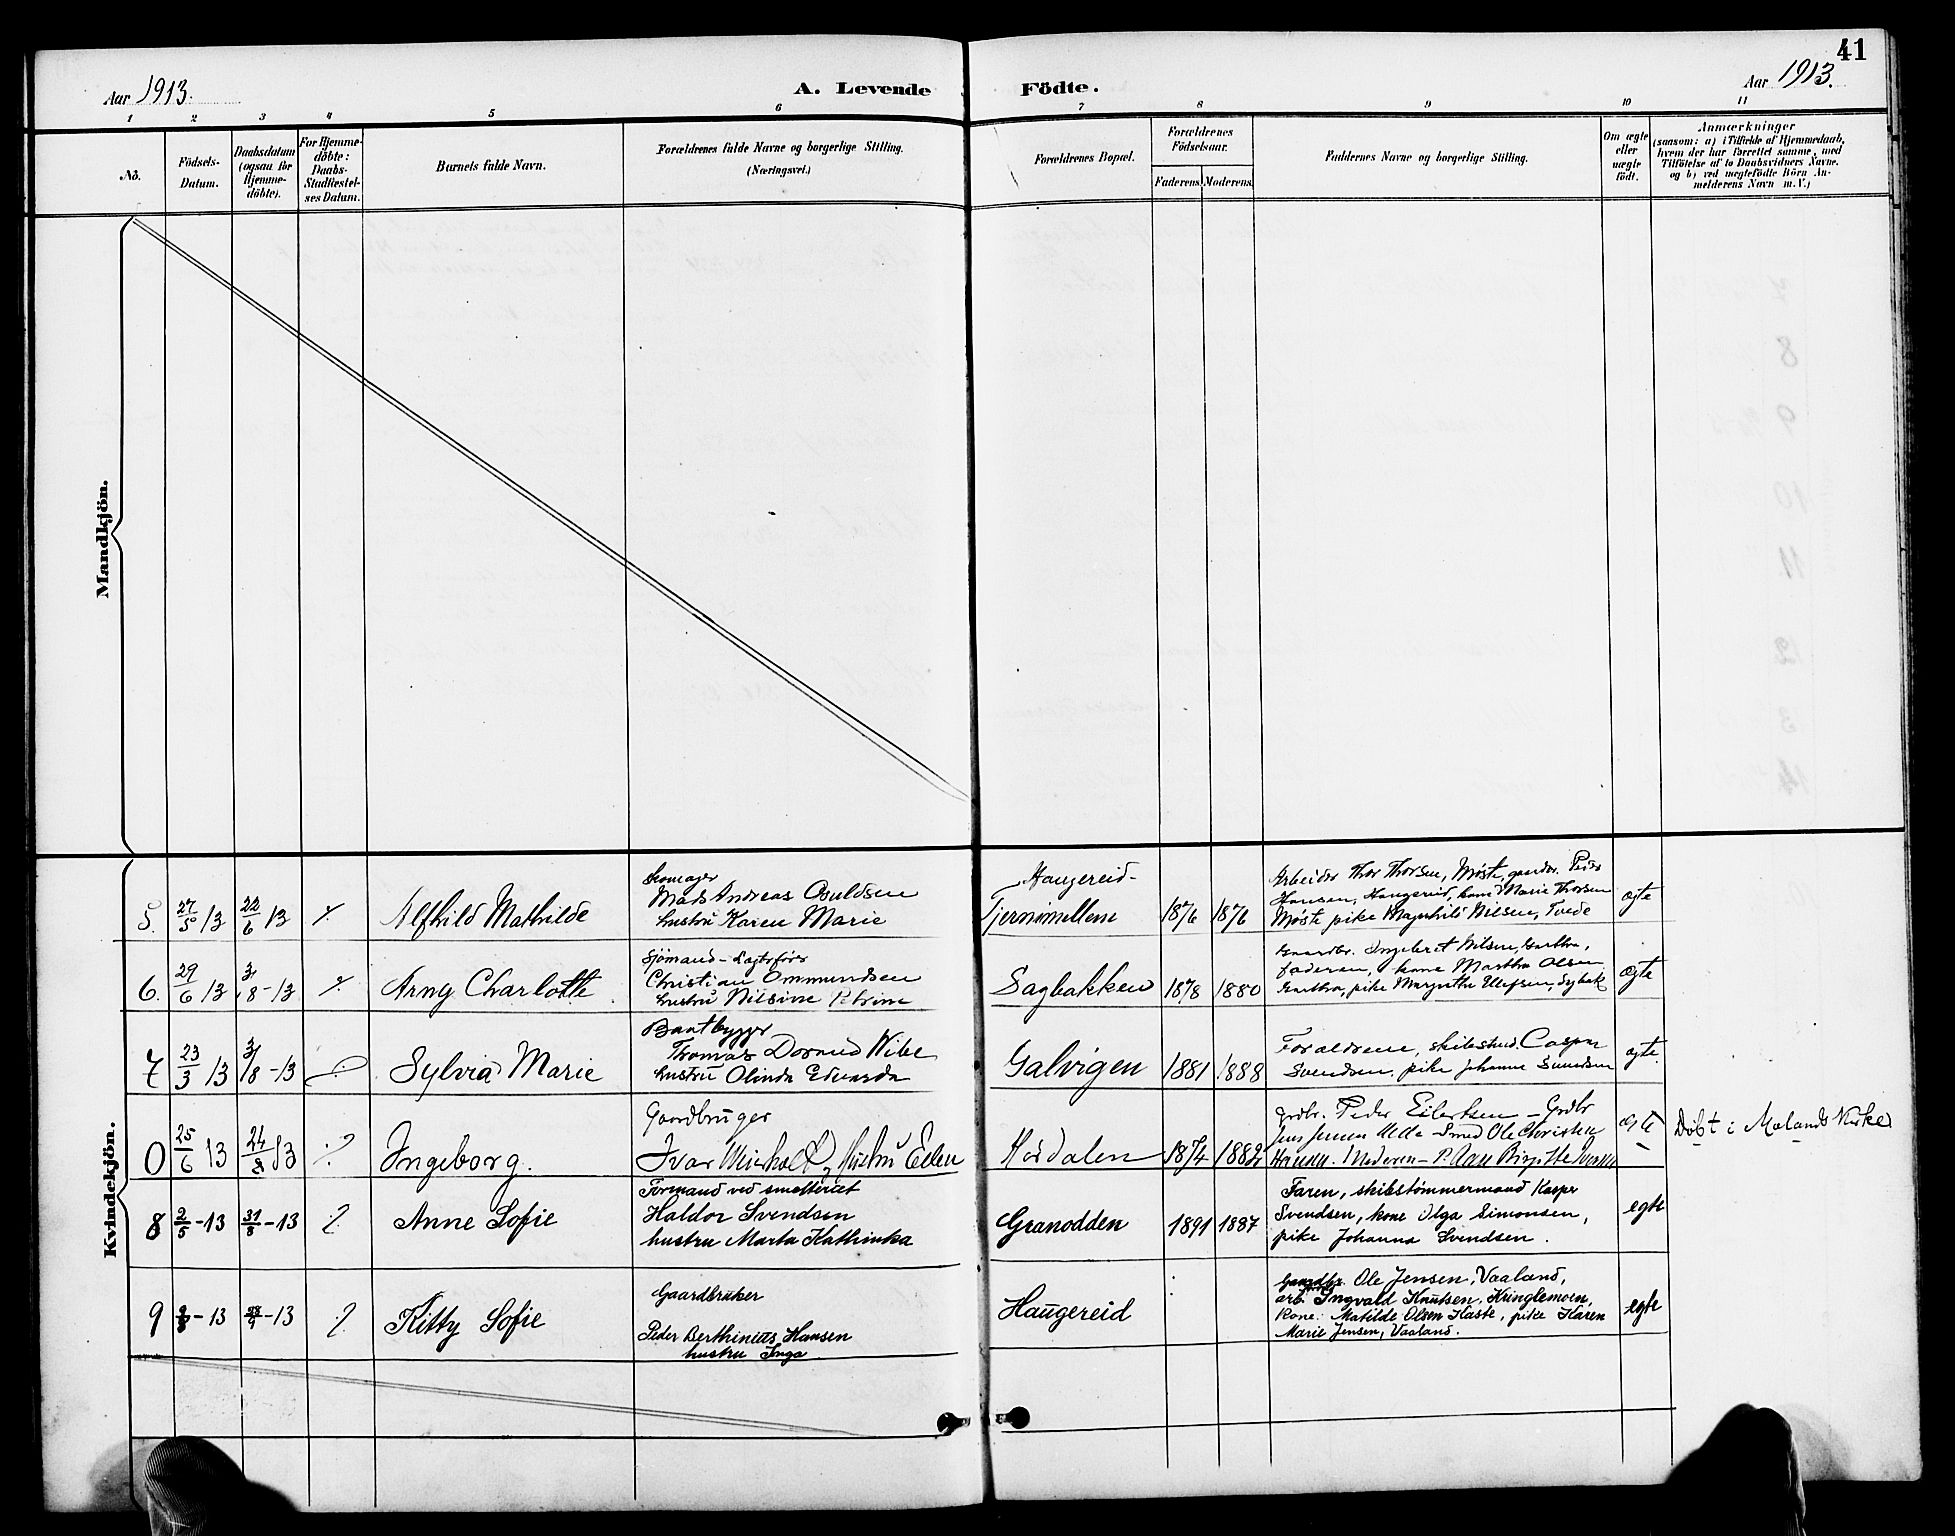 41
Aar 1913.
A. Levende Födte.
Aar 1913.
1 2 3 4 5 6 7 8 9 10 11
No.
Födsels-
Datum.
Daabsdatum
(ogsaa for
Hjemme-
döbte).
For Hjemme-
döbte:
Daabs-
Stadfæstel-
ses Datum.
Barnets fulde Navn.
Forældrenes fulde Navne og borgerlige Stilling.
(Næringsvei.)
Forældrenes Bopæl.
Forældrenes
Födselsaar.
Faderens. Moderens.
Faddernes Navne og borgerlige Stilling.
Om ægte
eller
uægte
födt.
Anmærkninger
(saasom: a) i Tilfælde af Hjemmedaab,
hvem der har forrettet samme, med
Tilföielse af to Daabsvidners Navne.
og b) ved uægtefödte Börn An-
melderens Navn m. V.)
Mandkjön.
Kvindekjön.
5. 27/5 13 22/6 13 Alfhild Mathilde
Skomager
Mads Andreas Osuldsen
hustru Karen Marie
Haugereid-
Tjernsmellene
1876 1876
Arbeider Thor Thorsen, Møste, gaardbr. Peder
Hansen, Haugereid, kone Marie Thorsen
Møste pike Magnhild Nilsen, Tvede
ægte
6. 29/6 13 3/8-13 Arny Charlotte
Sjømand-
Christian Ommundsen
hustru Nilsine Petrine
Sagbakken
1878 1880
Gaardbr. Ingebret Nilsen, Gartha,
faderen, kone Martha Olsen
Gartha, pike Ellefsen,
ægte
7 23/3 13 3/8-13 Sylvia Marie
Baatbygger
Thomas Wibe
hustru Olinda Edvarda
Galvigen
1881 1888
Foraldrene, Caspar
Svendsen, pike Johanne Svendsen
ægte.
0 25/6 13 24/8 13 Ingeborg.
Gaardbruger
Ivar Michael, Hustru Ellen
Hørdalen
1874 1882
Grdbr. Peder Eilertsen - Grdbr
Jens Jensen Smed Ole Christen
Hansen. Moderen -
ægte
Døbt i Molands Kirke
8 2/5-13 31/8-13 Anne Sofie
Formand ved smelteriet
Haldor Svendsen
hustru Marta Kathinka
Granodden
1891 1887
Faren, skibstømmermand Kasper
Svendsen, kone Olga Simonsen,
pike Johanna Svendsen.
egte
9 -13 -13 Kitty Sofie
Gaardbruker
Peder Berthinius Hansen
hustru Inga
Haugereid
Gaardbr. Ole Jensen, Vaaland,
arb. Ingvald Knutsen, Kringlemoen,
Kone: Matilde Olsen Kaste, pike Karen
Marie Jensen, Vaaland.
egte